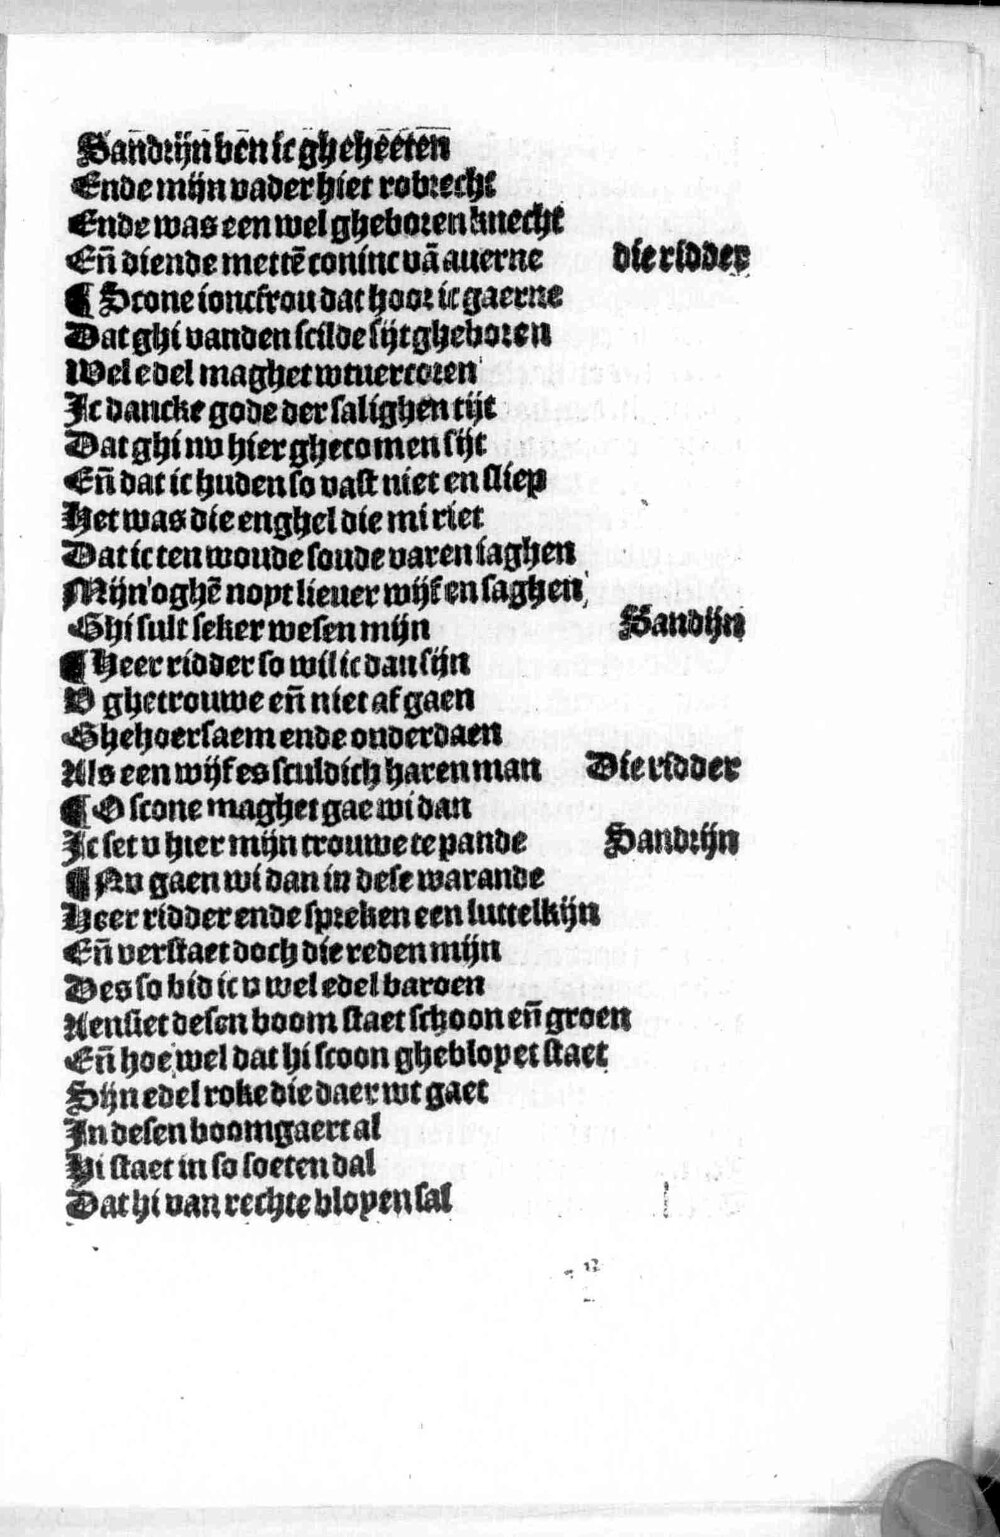 Sandrijn ben ic gheheeten
Ende mijn vader hiet robrecht
Ende was een wel gheboren knecht
Eñ diende mettē coninc vā auerne die ridder
¶ Scone ioncfrou dat hoor ic gaerne
Dat ghi vanden scilde sijt gheboren
Wel edel maghet wtuercoren
Ic dancke gode der salighen tijt
Dat ghi nv hier ghecomen sijt
Eñ dat ic huden so vast niet en sliep
Het was die enghel die mi riet
Dat ic ten woude soude varen iaghen
Mijn oghē noyt lieuer wijf en saghen
Ghi sult seker wesen mijn Sandijn
¶ Heer ridder so wil ic dan sijn
V ghetrouwe eñ niet af gaen
Ghehoersaem ende onderdaen
Als een wijf es sculdich haren man Die ridder
¶ O scone maghet gae wi dan
Ic set v hier mijn trouwe te pande Sandrijn
¶ Nv gaen wi dan in dese warande
Heer ridder ende spreken een luttelkijn
Eñ verstaet doch die reden mijn
Des so bid ic v wel edel baroen
Aensiet desen boom staet schoon eñ groen
Eñ hoe wel dat hi scoon ghebloyet staet
Sijn edel roke die daer wt gaet
In desen boomgaert al
Hi staet in so soeten dal
Dat hi van rechte bloyen sal